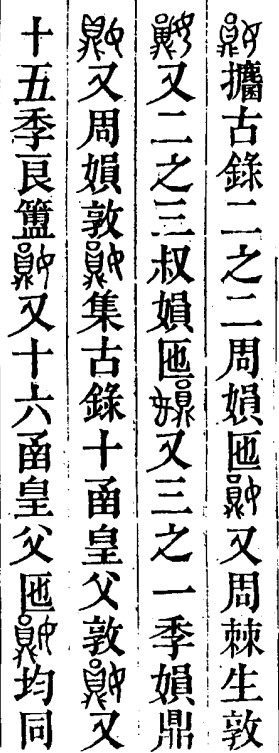 攟古錄二之二周娟匜又周棘生敦
又二之三叔娟匜又三之一季娟鼎
又周娟敦集古錄十𠚖皇父敦又
十五季良簠又十六𠚖皇父匜均同